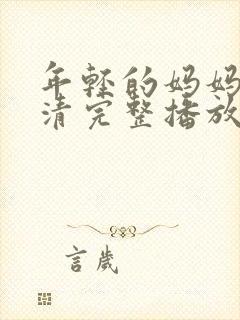 年轻的妈妈
清完整播放
言岁